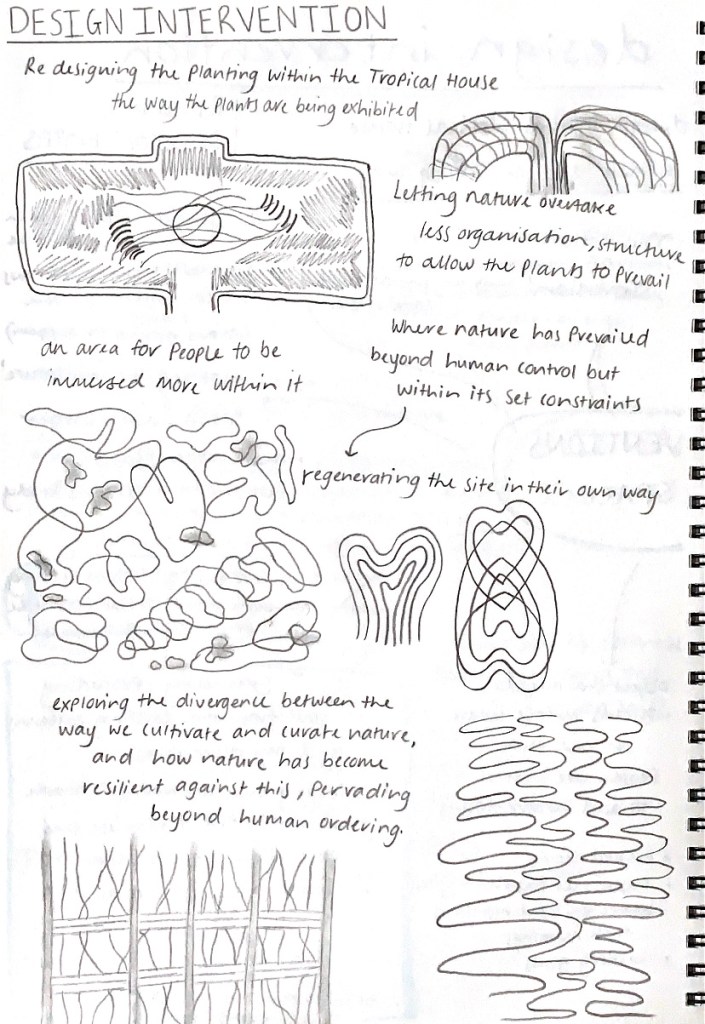 DESIGN INTERVENTION
Re designing the Planting within the Tropical House
the way the Plants are being exhibited
Letting nature overtake
less organisation, structure
to allow the Plants to Prevail
an area for People to be
immersed more within it
Where nature has Prevailed
beyond human control but
within its set constraints
regenerating the site in their own way
exploring the divergence between the
way we cultivate and curate nature,
and how nature has become
resilient against this, Pervading
beyond human ordering.